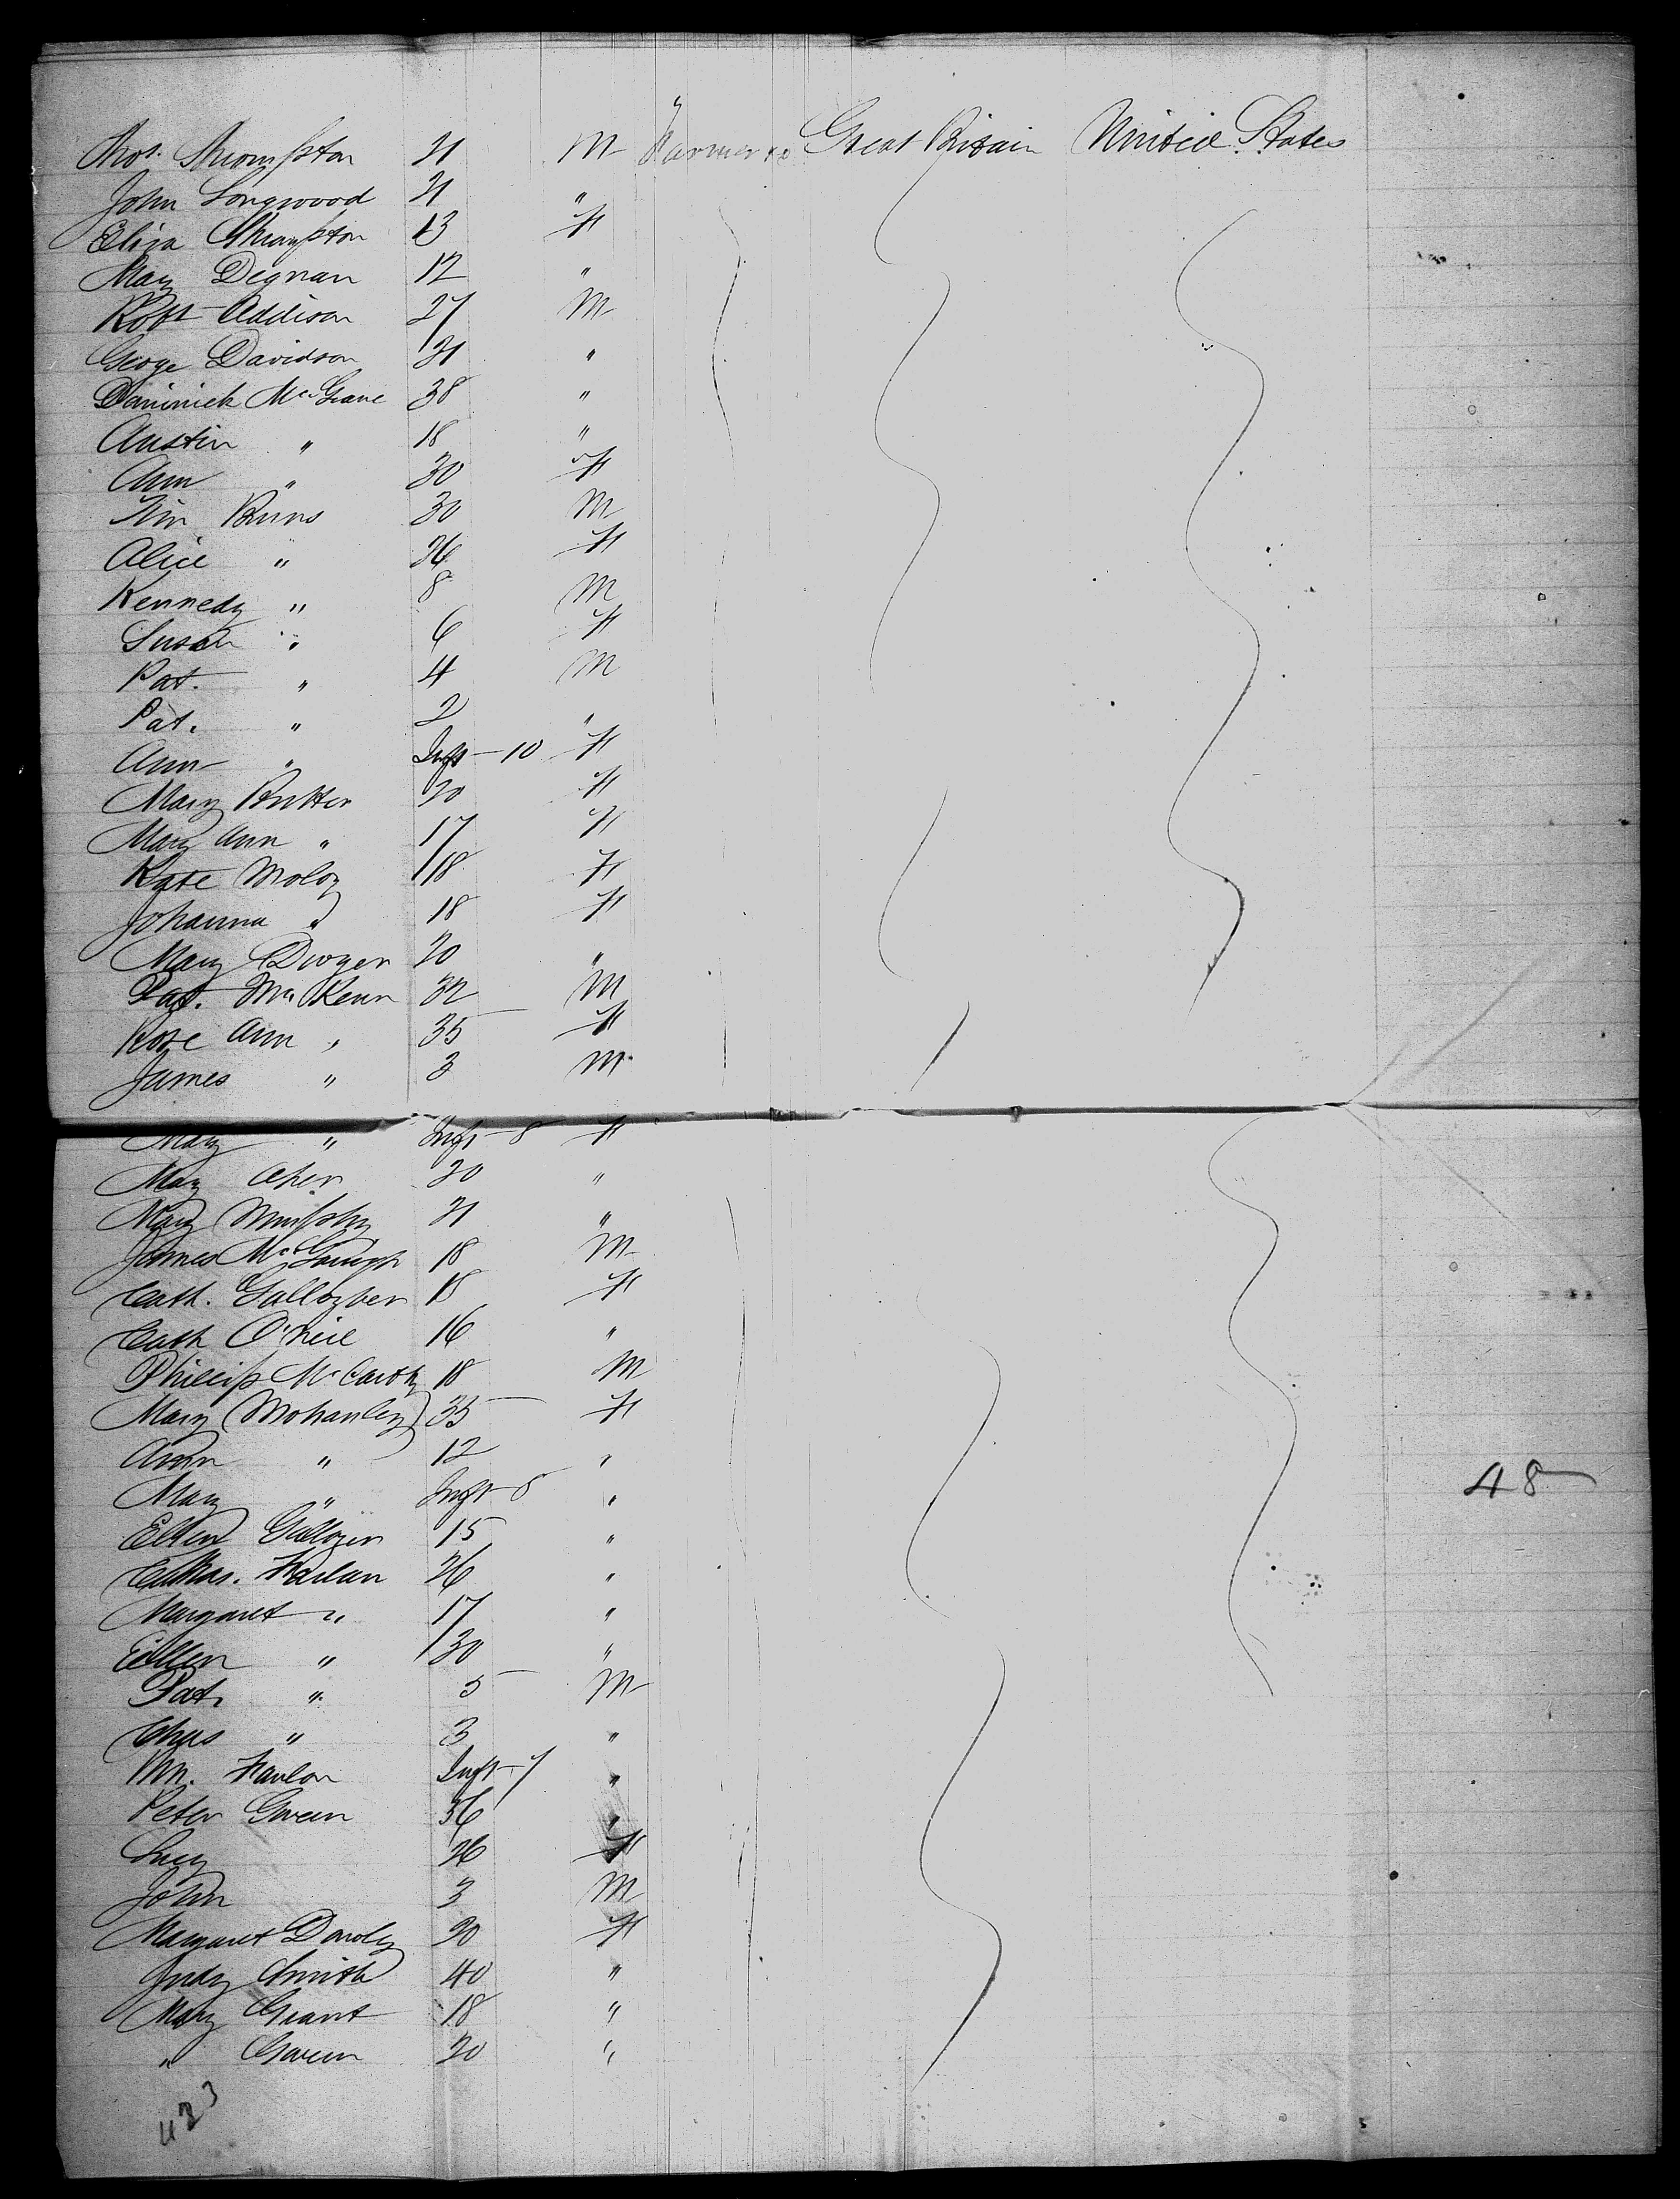 Thos. Thompston 21 M Farmer &c Great Britain United States
John Longwood 21 "
Eliza Thompston 13 F
Mary Degnan 12 "
Robt Addison 27 M
George Davidson 21 "
Dominick McGrane 38 "
Austin " 18 "
Ann " 30 F
Tim Burns 30 M
Alice " 26 F
Kennedy " 8 M
Susan " 6 F
Pat. " 4 M
Pat. " 2 "
Ann " Inft-10 F
Mary Britten 20 F
Mary Ann " 17 F
Kate Moloy 18 F
Johanna " 18 F
Mary Dwyer 20 "
Pat. McKenn 32 M
Rose Ann " 35 F
James " 3 M
Mary " Inft-8 F
Mary Aher 20 "
Mary Murphy 21 "
James 18 M
Cath. Gallogher 18 F
Cath O'Neil 16 "
Phillip McCarthy 18 M
Mary Mohanley 35 F
Ann " 12 "
Mary " Inft-8 "
Ellen 15 "
Hanlan 26 "
Margaret " 17 "
Ellen " 30 "
Pat. " 5 M
Chas " 3 "
Wm. Hanlon Inft-7 "
Peter Green 36 "
Lucy 26 F
John 3 M
Margaret Dowley 30 F
Judy Smith 40 "
Mary Grant 18 "
" Green 20 "
48
423